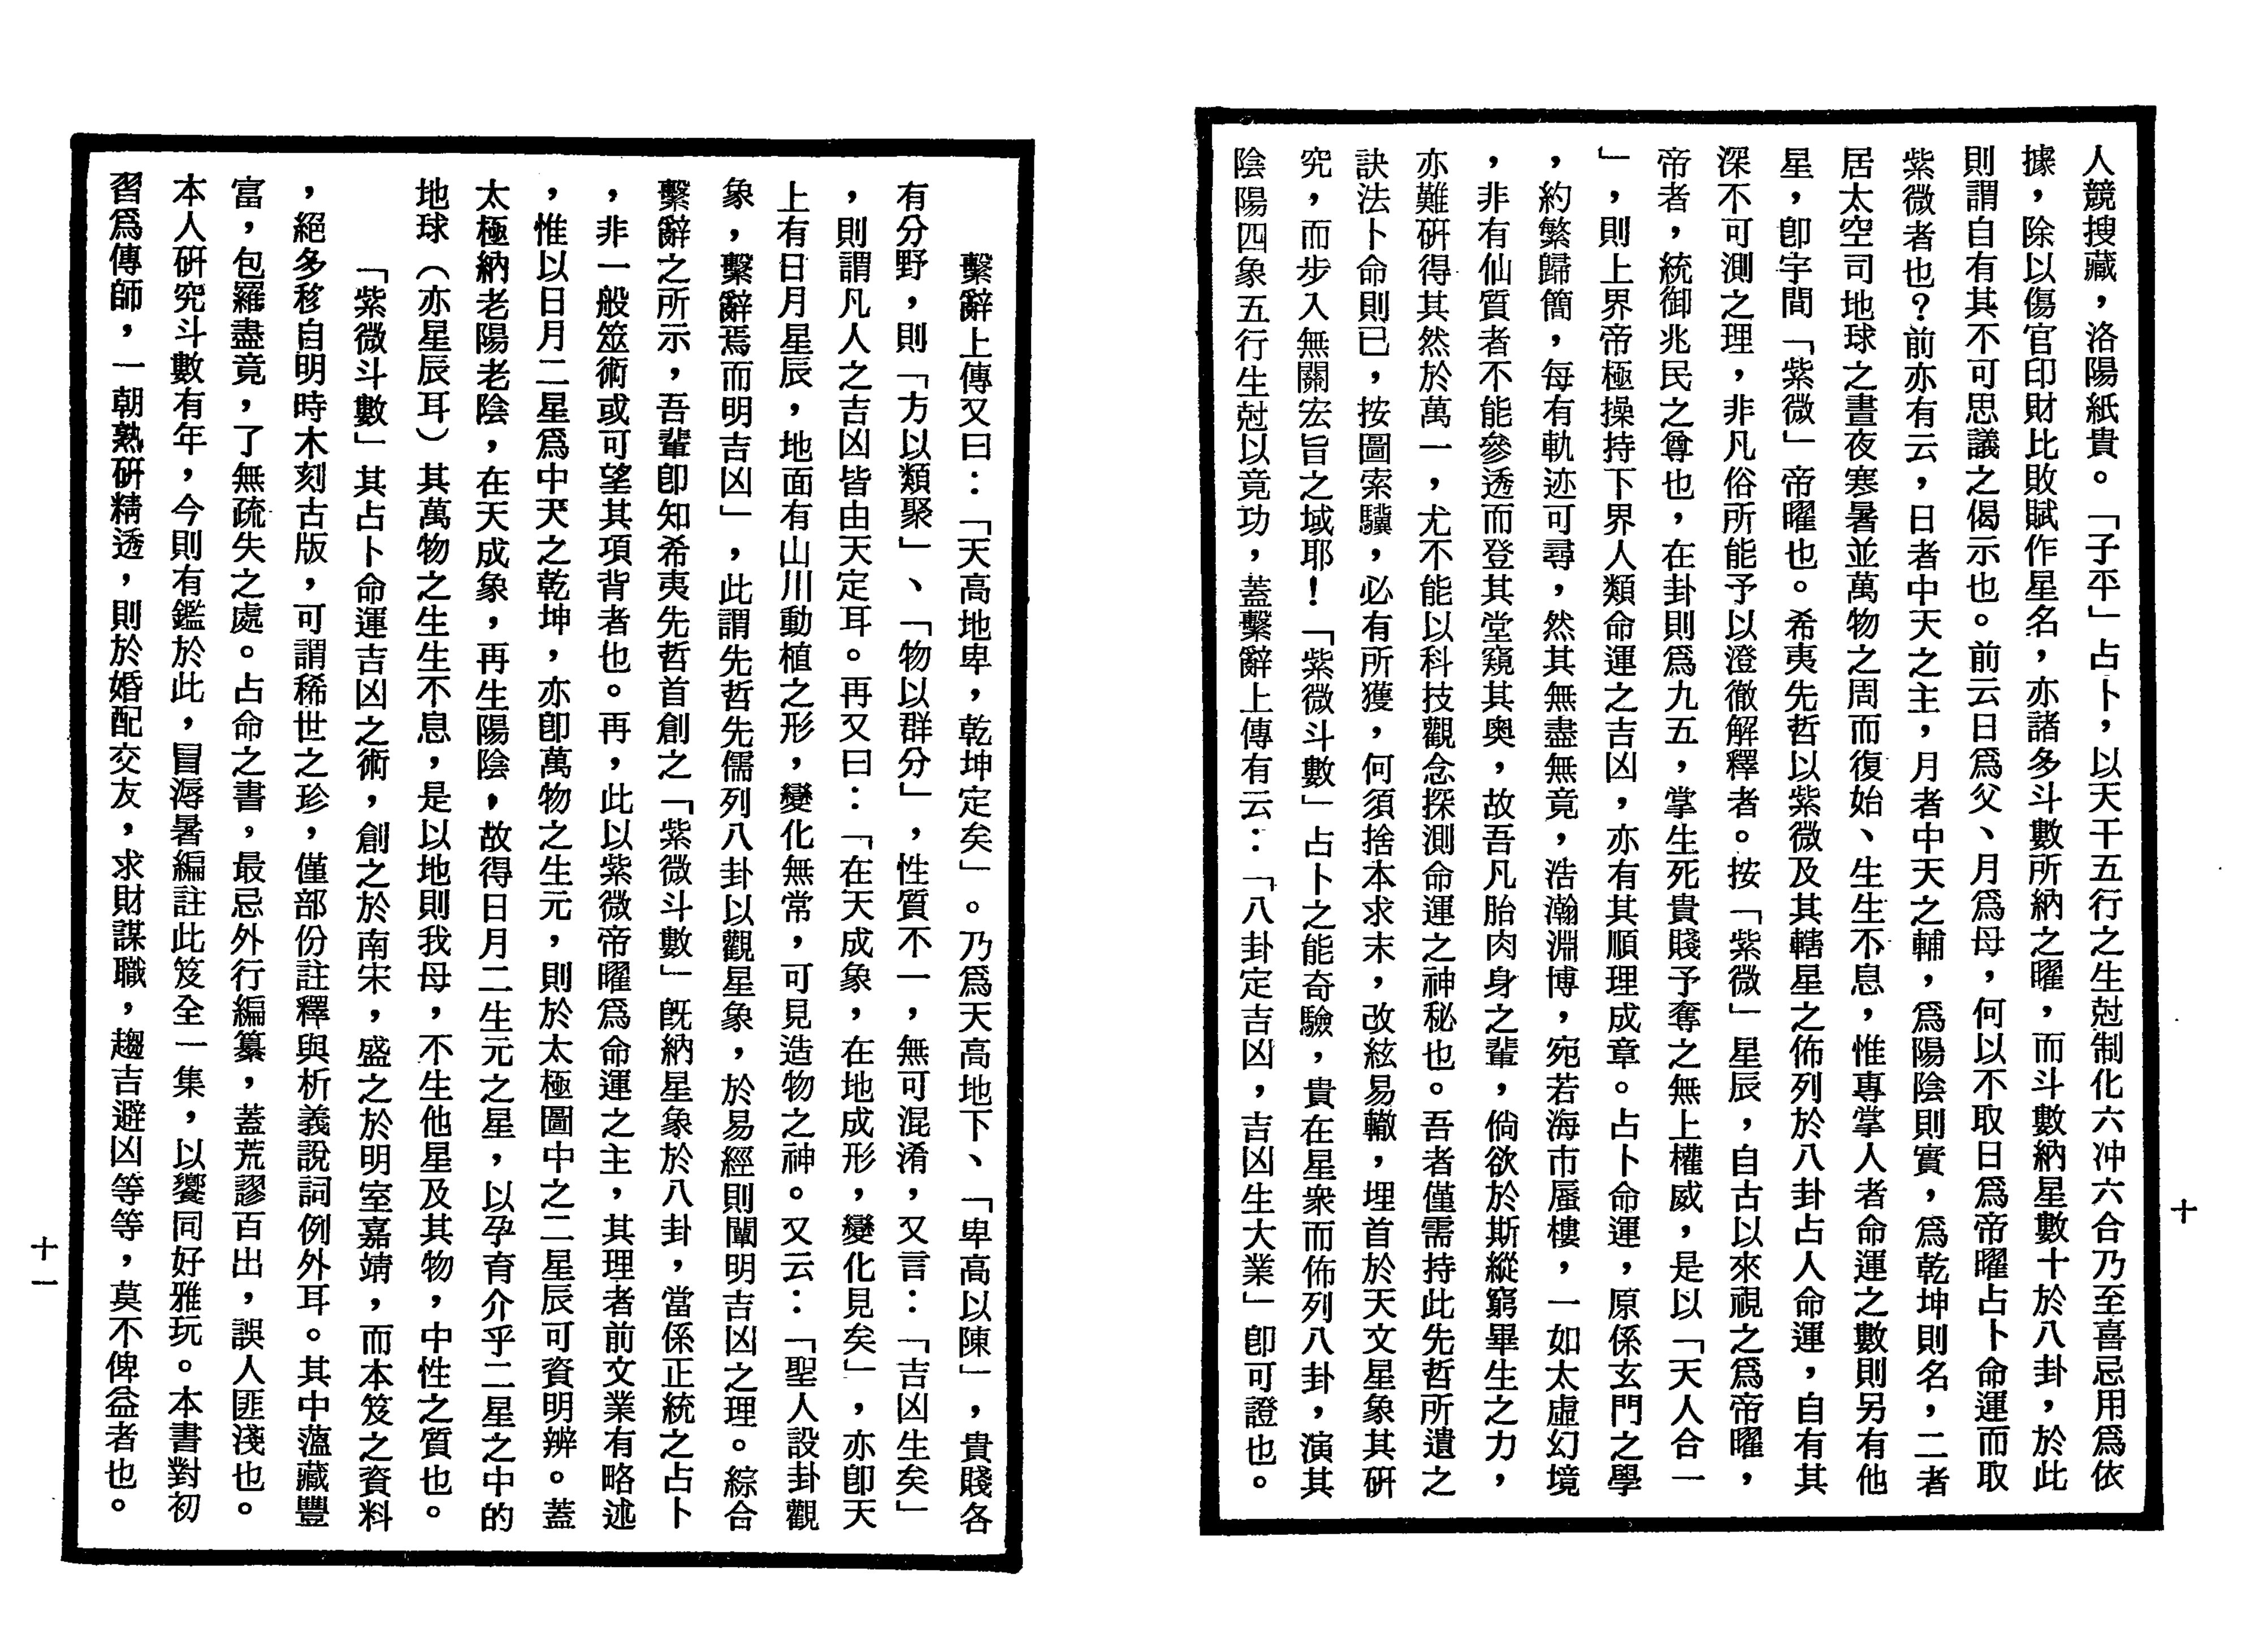 人競搜藏，洛陽紙貴。「子平」占卜，以天干五行之生尅制化六冲六合乃至喜忌用爲依
據，除以傷官印財比敗賦作星名，亦諸多斗數所納之曜，而斗數納星數十於八卦，於此
則謂自有其不可思議之偈示也。前云日爲父、月爲母，何以不取日爲帝曜占卜命運而取
紫微者也？前亦有云，日者中天之主，月者中天之輔，爲陽陰則實，爲乾坤則名，二者
居太空司地球之晝夜寒暑並萬物之周而復始、生生不息，惟專掌人者命運之數則另有他
星，卽宇間「紫微」帝曜也。希夷先哲以紫微及其轄星之佈列於八卦占人命運，自有其
深不可測之理，非凡俗所能予以澄徹解釋者。按「紫微」星辰，自古以來視之爲帝曜，
帝者，統御兆民之尊也，在卦則爲九五，掌生死貴賤予奪之無上權威，是以「天人合一
」，則上界帝極操持下界人類命運之吉凶，亦有其順理成章。占卜命運，原係玄門之學
，約繁歸簡，每有軌迹可尋，然其無盡無竟，浩瀚淵博，宛若海市蜃樓，一如太虛幻境
，非有仙質者不能參透而登其堂窺其奥，故吾凡胎肉身之輩，倘欲於斯縱窮畢生之力，
亦難研得其然於萬一，尤不能以科技觀念探測命運之神秘也。吾者僅需持此先哲所遺之
訣法卜命則已，按圖索驥，必有所獲，何須捨本求末，改絃易轍，埋首於天文星象其研
究，而步入無關宏旨之域耶！「紫微斗數」占卜之能奇驗，貴在星衆而佈列八卦，演其
陰陽四象五行生尅以竟功，蓋繫辭上傳有云：「八卦定吉凶，吉凶生大業」卽可證也。
十
繫辭上傳又曰：「天高地卑，乾坤定矣」。乃爲天高地下、「卑高以陳」，貴賤各
有分野，則「方以類聚」、「物以群分」，性質不一，無可混淆，又言：「吉凶生矣」
，則謂凡人之吉凶皆由天定耳。再又曰：「在天成象，在地成形，變化見矣」，亦卽天
上有日月星辰，地面有山川動植之形，變化無常，可見造物之神。又云：「聖人設卦觀
象，繫辭焉而明吉凶」，此謂先哲先儒列八卦以觀星象，於易經則闡明吉凶之理。綜合
繫辭之所示，吾輩卽知希夷先哲首創之「紫微斗數」旣納星象於八卦，當係正統之占卜
，非一般筮術或可望其項背者也。再，此以紫微帝曜爲命運之主，其理者前文業有略述
，惟以日月二星爲中天之乾坤，亦卽萬物之生元，則於太極圖中之二星辰可資明辨。蓋
太極納老陽老陰，在天成象，再生陽陰，故得日月二生元之星，以孕育介乎二星之中的
地球（亦星辰耳）其萬物之生生不息，是以地則我母，不生他星及其物，中性之質也。
「紫微斗數」其占卜命運吉凶之術，創之於南宋，盛之於明室嘉靖，而本笈之資料
，絕多移自明時木刻古版，可謂稀世之珍，僅部份註釋與析義說詞例外耳。其中薀藏豐
富，包羅盡竟，了無疏失之處。占命之書，最忌外行編纂，蓋荒謬百出，誤人匪淺也。
本人研究斗數有年，今則有鑑於此，冒溽暑編註此笈全一集，以饗同好雅玩。本書對初
習爲傳師，一朝熟研精透，則於婚配交友，求財謀職，趨吉避凶等等，莫不俾益者也。
十一